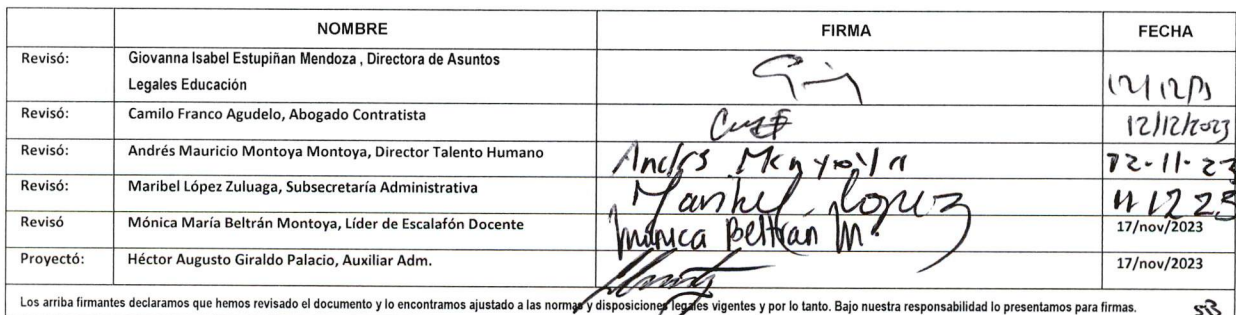 NOMBRE FIRMA FECHA
Revisó: Giovanna Isabel Estupiñan Mendoza , Directora de Asuntos
Legales Educación
Revisó: Camilo Franco Agudelo, Abogado Contratista 12/12/2023
Revisó: Andrés Mauricio Montoya Montoya, Director Talento Humano 12-11-23
Revisó: Maribel López Zuluaga, Subsecretaría Administrativa Maribel López
Revisó Mónica María Beltrán Montoya, Líder de Escalafón Docente Mónica Beltrán M. 17/nov/2023
Proyectó: Héctor Augusto Giraldo Palacio, Auxiliar Adm. 17/nov/2023
Los arriba firmantes declaramos que hemos revisado el documento y lo encontramos ajustado a las normas y disposiciones legales vigentes y por lo tanto. Bajo nuestra responsabilidad lo presentamos para firmas.